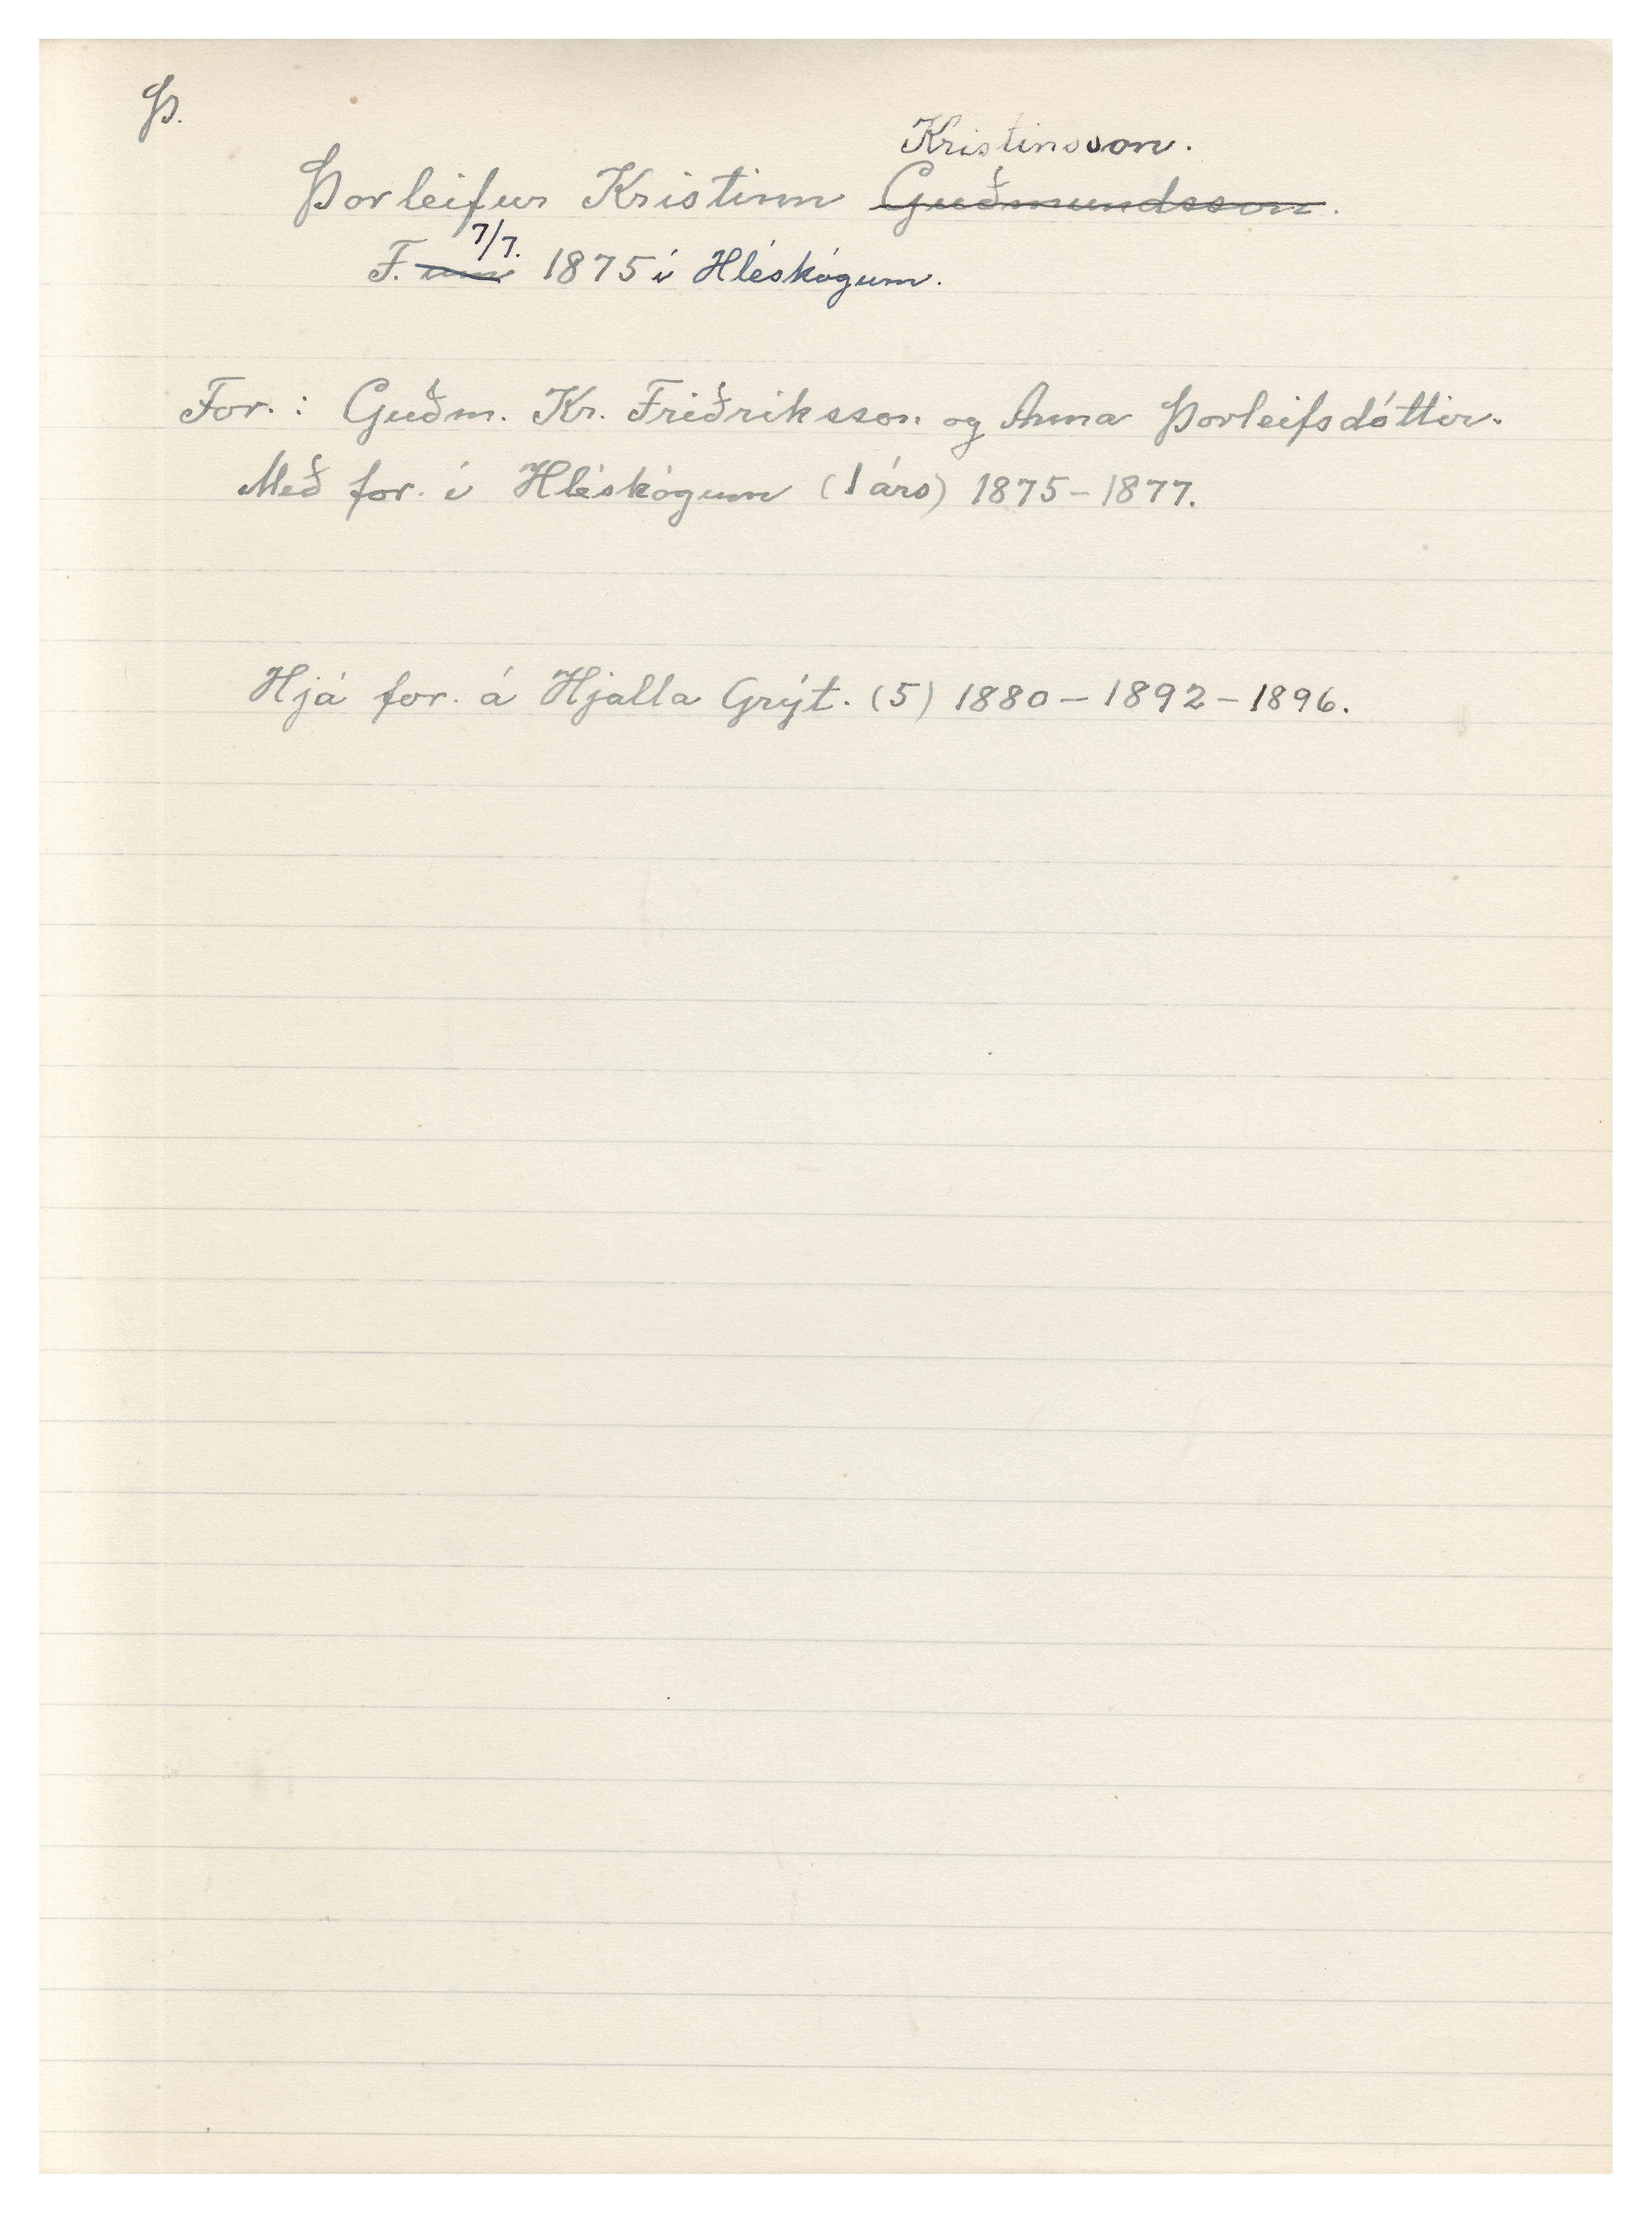 Þ.
Kristinsson.
Þorleifur Kristinn Guðmundsson.
7/7.
F. um 1875 í Hléskógum.
For. : Guðm. Kr. Friðriksson og Anna Þorleifsdóttir.
Með for. í Hléskógum (1 árs) 1875 – 1877.
Hjá for. á Hjalla Grýt. (5) 1880 – 1892 – 1896.